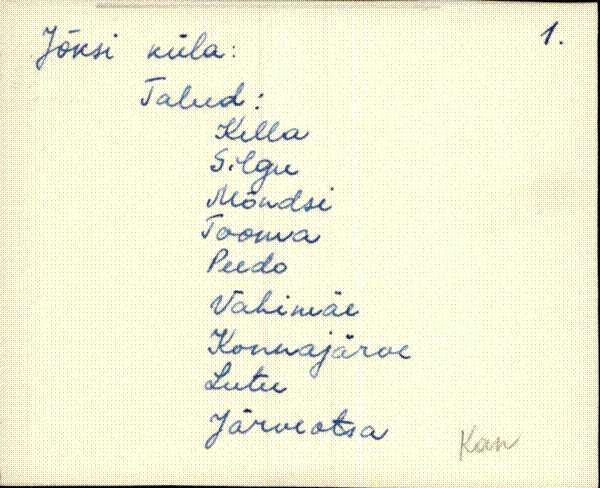 1.
Jõksi küla:
Talud:
Killa
Silgu
Mõndsi
Tooma
Peedo
Vahimäe
Konnajärve
Lutu
Järveotsa
Kan